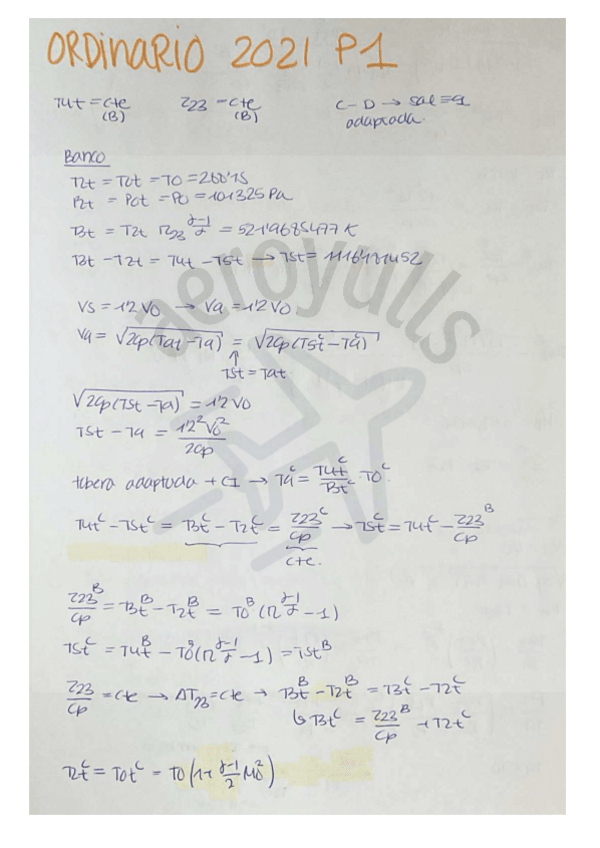 ORDINARIO 2021 P1
T4t = cte (B)   Z23 = cte (B)   C-D → sal=g adaptada.
Banco
T2t = T0t = T0 = 288'15
P2t = P0t = P0 = 101325 Pa
T3t = T2t π23^(γ-1/γ) = 521'9685477 K
T3t - T2t = T4t - T5t → T5t = 1116'181452
Vs = 1'2 V0 → V9 = 1'2 V0
V9 = √2cp(T9t - T9) = √2cp(T5t^C - T9^C)
↑
T5t = T9t
√2cp(T5t - T9) = 1'2 V0
T5t - T9 = 1'2² V0² / 2cp
tobera adaptada + CI → T9^C = T4t^C / T3t^C · T0^C
T4t^C - T5t^C = T3t^C - T2t^C = Z23^C / cp → T5t^C = T4t^C - Z23^B / cp
cte.
Z23^B / cp = T3t^B - T2t^B = T0^B (π^(γ-1/γ) - 1)
T5t^C = T4t^B - T0^B (π^(γ-1/γ) - 1) = T5t^B
Z23 / cp = cte → ΔT23 = cte → T3t^B - T2t^B = T3t^C - T2t^C
↳ T3t^C = Z23^B / cp + T2t^C
T2t^C = T0t^C = T0 (1 + γ-1/2 M0²)
aeroyulls